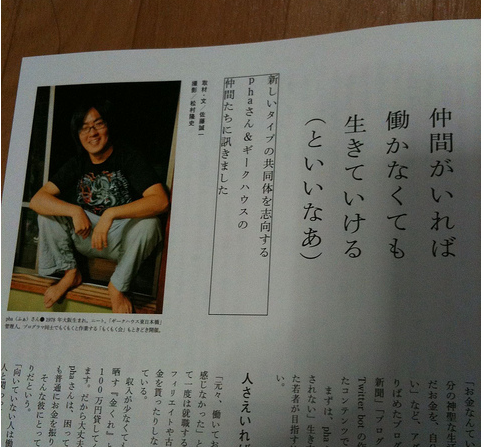 仲間がいれば
働かなくても
生きていける
(といいなあ)
新しいタイプの共同体を志向する
phaさん&ギークハウスの
仲間たちに訊きました
取材・文/佐藤誠一
撮影/松村隆史
pha(ふぁ)さん●1978年大阪生まれ。ニート。「ギークハウス東日本橋」
管理人。プログラマ同士でもくもくと作業する「もくもく会」もときどき開催。
「お金なんて
分の神聖な生
だお金を、自
い」など、アグ
りばめたブ
新聞」、ブログ
Twitter botの
たコンテンツ
まずは、ph
されない」生
た若者が目指す
い。
人さえいれば
「元々、働いてお
感じなかった」と
て一度は就職する
フィリエイトや古
金を買ったりしな
ている。
収入が少なくても
晒す『金くれ』と
100万円貸して
ます。だから大丈夫
phaさんは、困って
も普通にお金を振り
りだという。
そんな彼にとって
「向いていない人は働